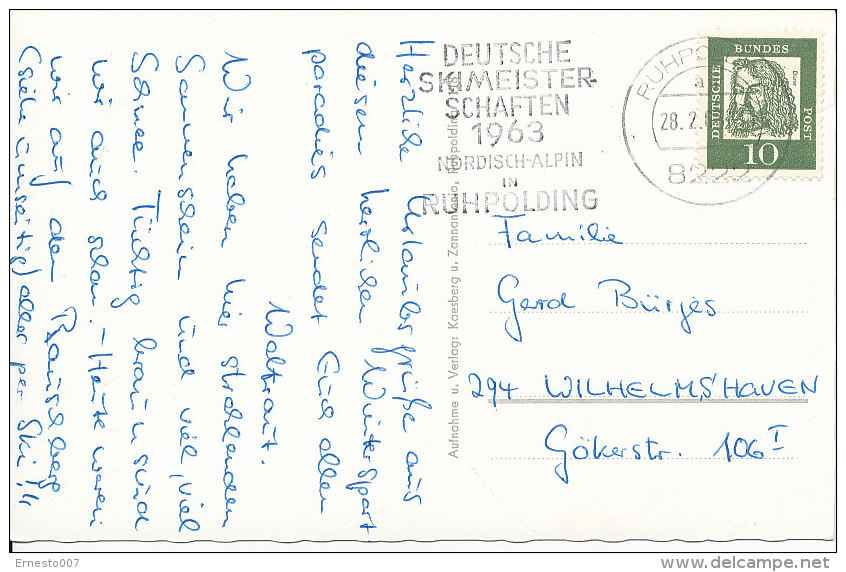 Herzliche Urlaubsgrüße aus
diesem herrlichen Wintersport
paradies sendet Euch allen
Waltraut.
Wir haben hier strahlenden
Sonnenschein und viel, viel
Schnee. Tüchtig braun sind
wir auch schon. – Heute waren
wir auf dem Rauschberg
(siehe umseitig) aber per Ski!!
Aufnahme u. Verlag: Kaesberg u. Zannantonio, Ruhpolding
DEUTSCHE
SKIMEISTER-
SCHAFTEN
1963
NORDISCH-ALPIN
IN
RUHPOLDING
28.2.
8222
DEUTSCHE BUNDES POST
10
Familie
Gerd Bürges
294 WILHELMSHAVEN
Gökerstr. 106 I
Ernesto007
delcampe.net